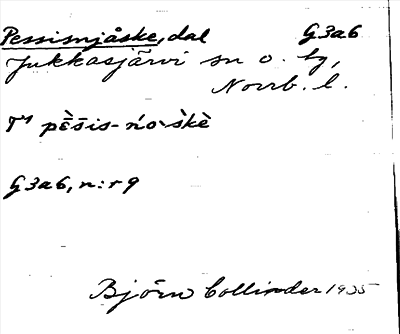 Pessisnjåske, dal G3a6
Jukkasjärvi sn o. tg,
Norrb. l.
pēs̀is-ńo·s̀kè
G3a6, n:r 9
Björn Collinder 1935